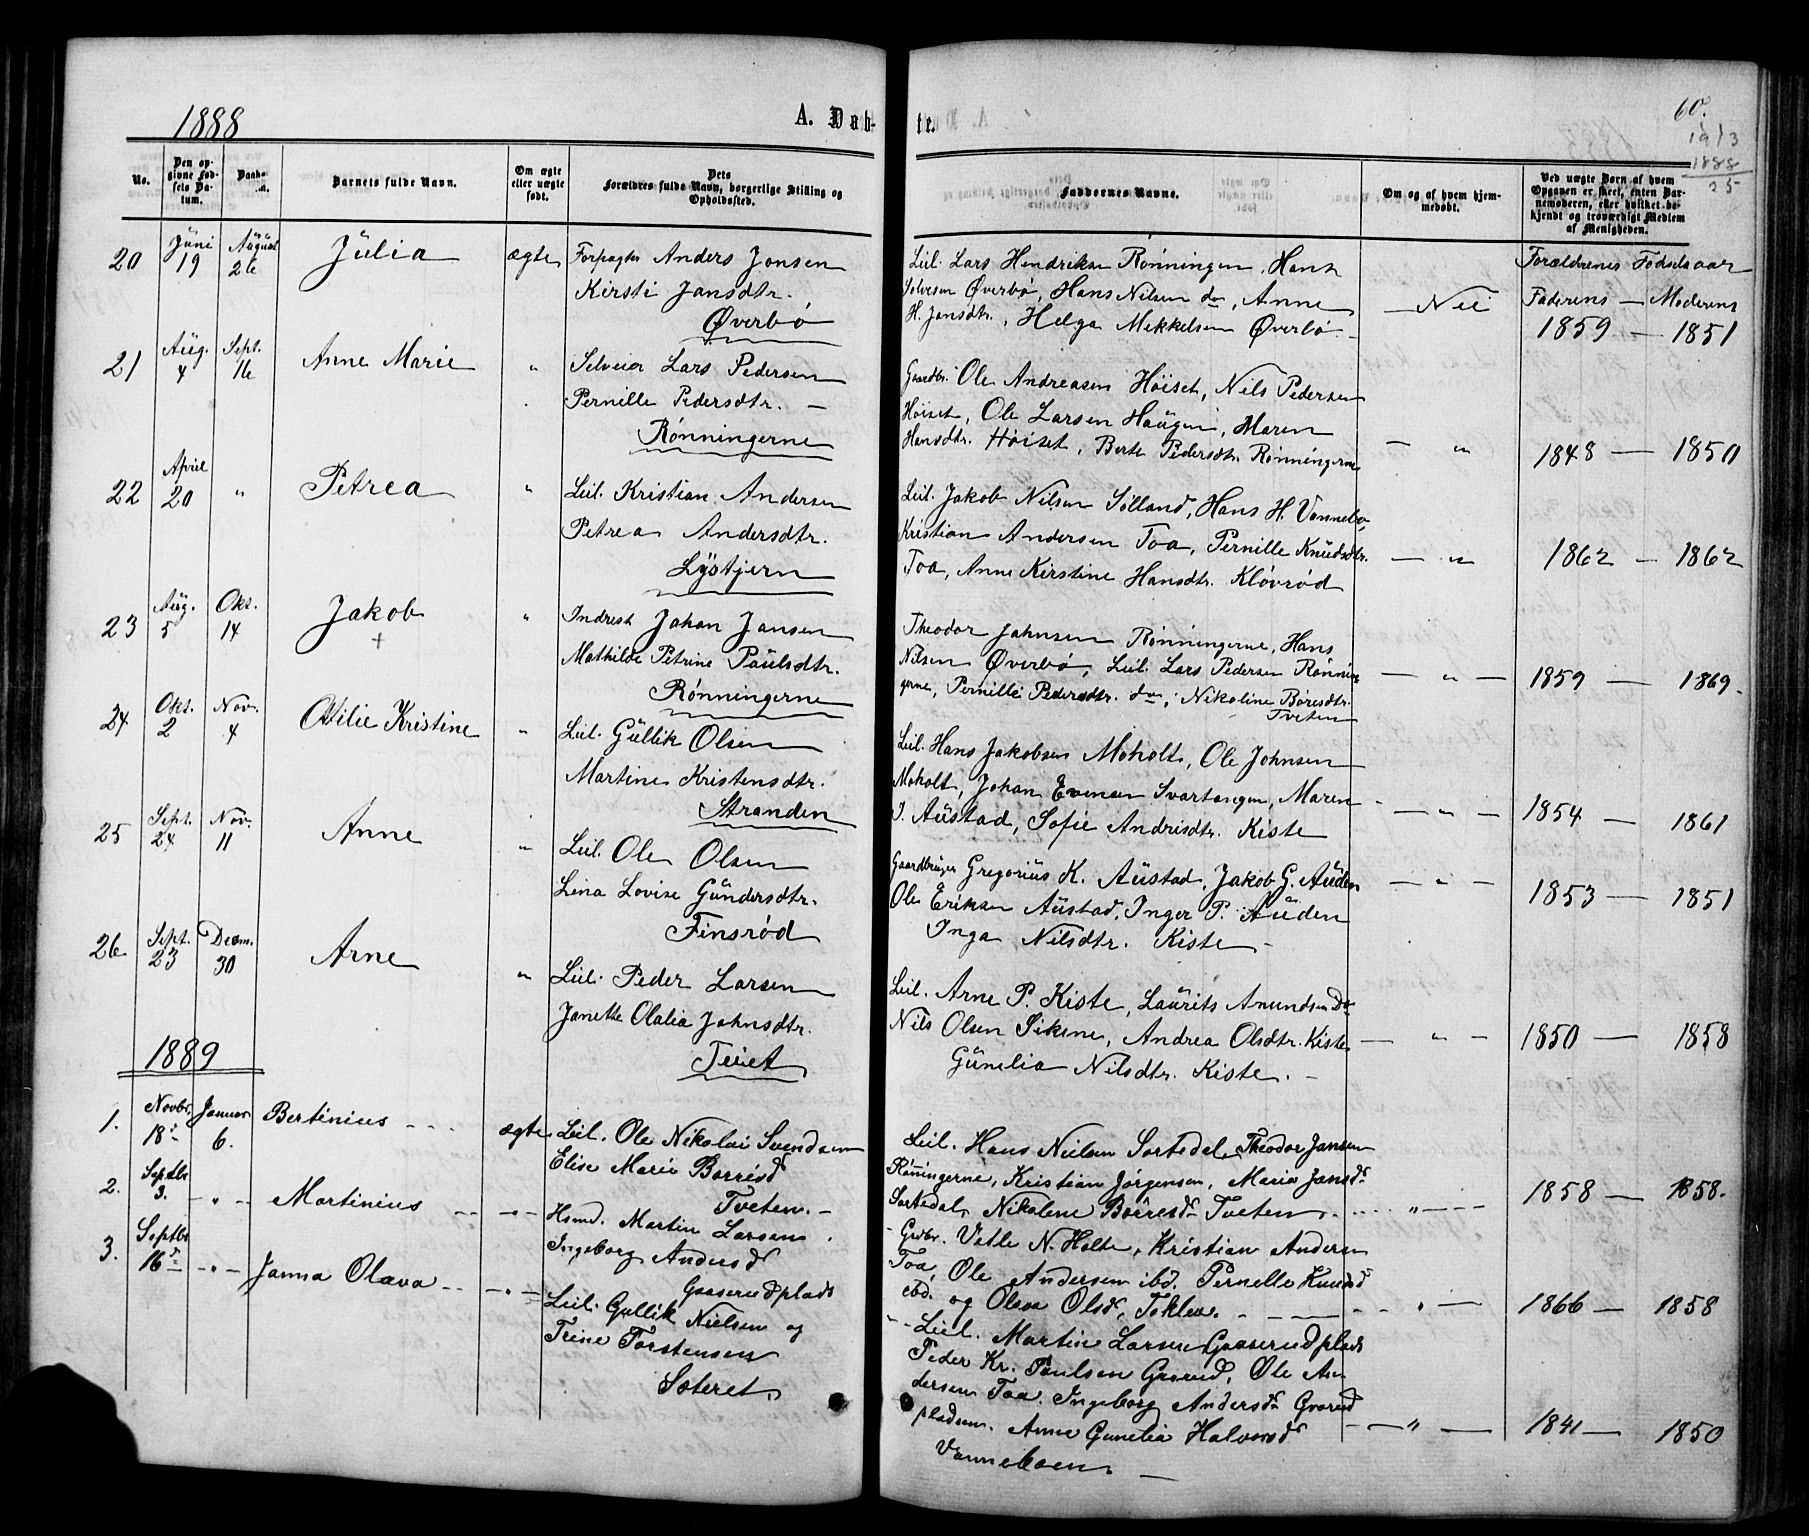 1888
A. Døb-
te.
60.
1913
1888
25
No.
Den op-
givne Fød-
sels Da-
tum.
Daabs-
Barnets fulde Navn.
Om ægte
eller uægte
født.
Dets
Forældres fulde Navn, borgerlige Stilling og
Opholdssted.
Faddernes Navne.
Om og af hvem hjem-
medøbt.
Ved uægte Børn af hvem
Opgaven er skeet, enten Bar-
nemoderen, eller hvilket be-
kjendt og troværdigt Medlem
af Menigheden.
20 Juni 19 August 26 Julia ægte Forpagter Anders Jonsen
Kirsti Jansdtr.
Øverbö
Leil. Lars Hendriksen Rønningen, Hans
Solvesen Øverbö, Hans Nilsen do, Anne
H. Jansdtr., Helga Mekkelsen Øverbö.
— Nei
Forældrenes Fødselsaar
Faderens — Moderens
1859 — 1851
21 Aug. 4 Sept. 16 Anne Marie " Selveier Lars Pedersen
Pernille Pedersdtr. —
Rønningerne
Gaardbr. Ole Andreasen Höiset, Nils Pedersen
Höiset, Ole Larsen Haugen, Maren
Hansdtr. Höiset, Berte Pedersdtr. Rønningerne
— " 1848 — 1850
22 April 20 " Petrea " Leil. Kristian Andersen
Petrea Andersdtr.
Lystjern
Leil. Jakob Nilsen Solland, Hans H. Vannebo,
Kristian Andersen Toa, Pernille Knudsdtr.
Toa, Anne Kirstine Hansdtr. Klövröd
— " — 1862 — 1862
23 Aug. 5 Okt. 14 Jakob + " Inderst Johan Jansen
Mathilde Petrine Paulsdtr.
Rønningerne
Theodor Johnsen Rønningerne, Hans
Nilsen Øverbö, Leil. Lars Pedersen Rønnin
gerne, Pernille Pedersdtr. do, Nikoline Böresdtr.
Tveten
— " — 1859 — 1869.
24 Okt. 2 Nov. 4 Otilie Kristine " Leil. Gullik Olsen
Martine Kristensdtr.
Stranden
Leil. Hans Jakobsen Moholt, Ole Johnsen
Moholt, Johan Evensen Svartangen, Maren
J. Austad, Sofie Andrisdtr. Kiste
— " — 1854 — 1861
25 Sept. 24 Nov. 11 Anne " Leil. Ole Olsen
Lina Lovise Gundersdtr.
Finsröd
Gaardbruger Gregorius K. Austad, Jakob G. Auden
Ole Eriksen Austad, Inger P. Auden
Inga Nilsdtr. Kiste —
— " — 1853 — 1851
26 Sept. 23 Decm. 30 Arne " Leil. Peder Larsen
Janette Olalia Johnsdtr.
Teiet
Leil. Arne P. Kiste, Laurits Amundsen Do
Nils Olsen Siksne, Andrea Olsdtr. Kiste
Gunelia Nilsdtr. Kiste. —
— " — 1850 — 1858
1889
1. Novbr. 18 Januar 6. Bertinius ægte Leil. Ole Nikolai Svendsen
Elise Marie Borresd
Tveten. —
Leil. Hans Nielsen Sortedal, Theodor Jansen
Rønningerne, Kristian Jørgensen, Marie Jansd
Sortedal, Nikolene Börresd Tveten.
" 1858 — 1858.
2. Septbr 3. — " — Martinius — " — Hsmd. Martin Larsen
Ingeborg Andersd
Gaaserudplads
Grdbr. Vetle N. Holte, Kristian Andersen
Toa, Ole Andersen ibd. Pernelle Knudsd
ibd. og Olava Olsd, Toklev.
" — 1866 — 1858
3. Septbr 16 — " — Janna Olava — " — Leil. Gullik Nielsen og
Trine Torstensen
Sæteret
Leil. Martin Larsen Gaaserudplads
Peder Kr. Paulsen Grorud, Ole An
dersen Toa. Ingeborg Andersd Grorud
pladsen. Anne Gunelia Halvorsd
Vanneboen. —
— " — 1841 — 1850